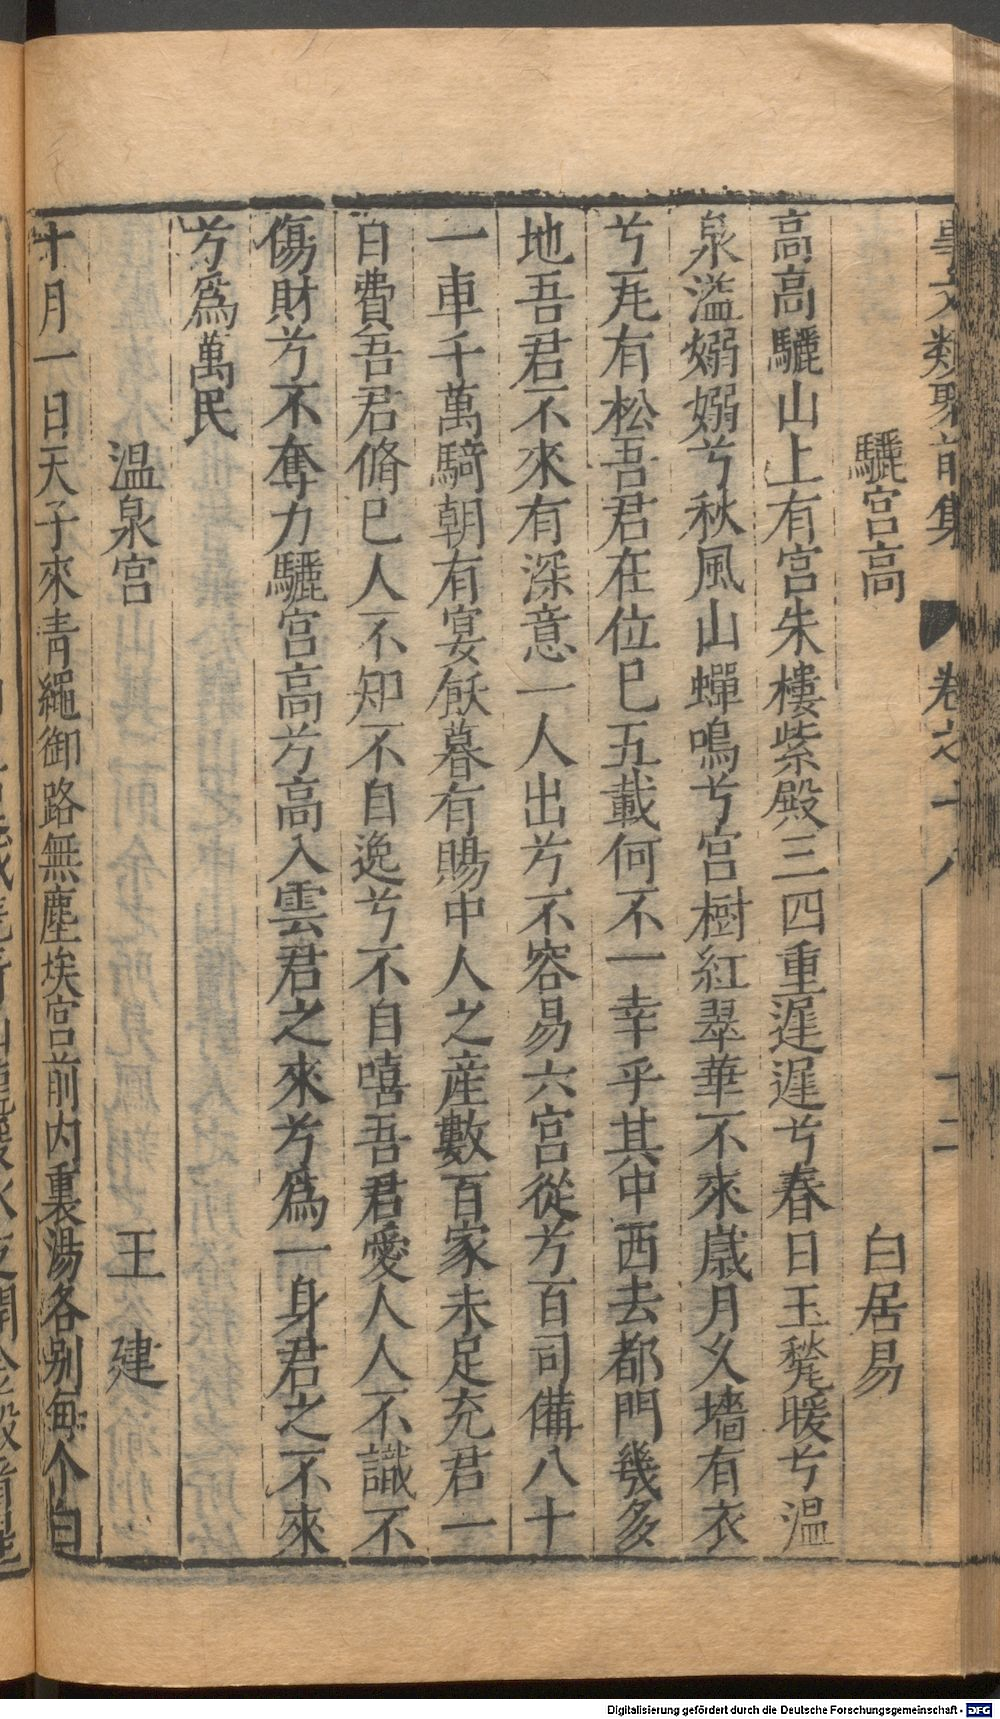 事文類聚前集　卷之十八　十二
驪宮高　白居易
高高驪山上有宮朱樓紫殿三四重遲遲兮春日玉甃暖兮溫
泉溢嫋嫋兮秋風山蟬鳴兮宮樹紅翠華不來歲月久墻有衣
兮瓦有松吾君在位已五載何不一幸乎其中西去都門幾多
地吾君不來有深意一人出兮不容易六宮從兮百司備八十
一車千萬騎朝有宴飫暮有賜中人之産數百家未足充君一
日費吾君脩已人不知不自逸兮不自嘻吾君愛人人不識不
傷財兮不奪力驪宮高兮高入雲君之來兮為一身君之不來
兮為萬民
温泉宮　王建
十月一日天子來青繩御路無塵埃宮前内裏湯各别每个白
Digitalisierung gefördert durch die Deutsche Forschungsgemeinschaft - DFG